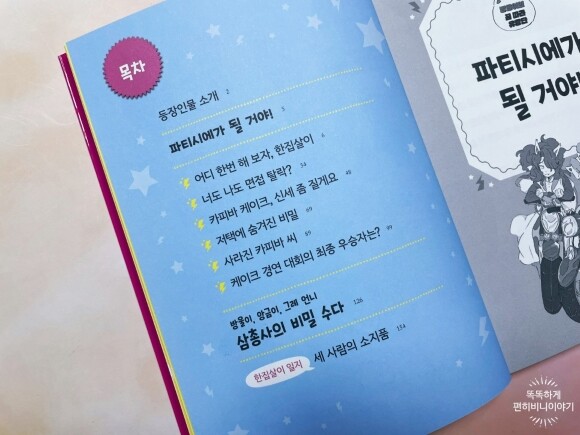 목차
등장인물 소개 2
파티시에가 될 거야! 5
어디 한번 해 보자, 한집살이 6
너도 나도 면접 탈락? 34
카피바 케이크, 신세 좀 질게요 48
저택에 숨겨진 비밀 69
사라진 카피바 씨 89
케이크 경연 대회의 최종 우승자는? 99
방울이, 앙금이, 그레 언니
삼총사의 비밀 수다 126
한집살이 일지 세 사람의 소지품 134
파티시에가
될 거야!
똑똑하게
편히비니이야기